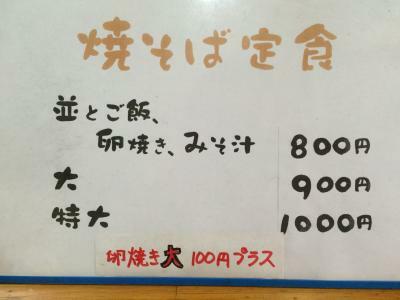 焼そば定食
並とご飯、
卵焼き、みそ汁 800円
大 900円
特大 1000円
卵焼き大 100円プラス